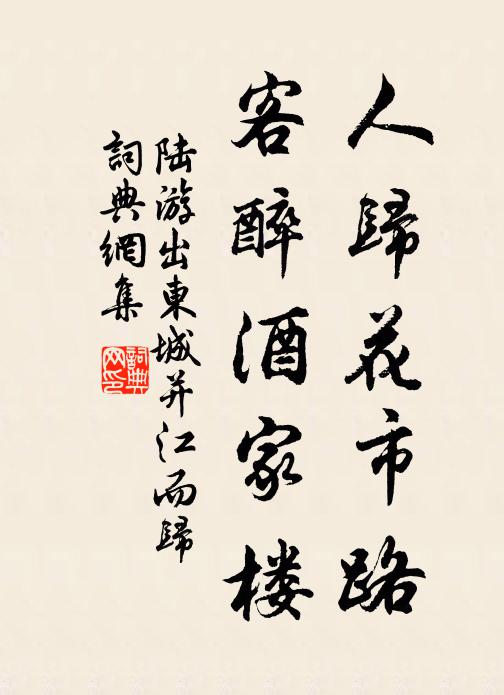 人歸花市路
客醉酒家楼
陆游出東城并江而歸
詞典網集
詞典
网印